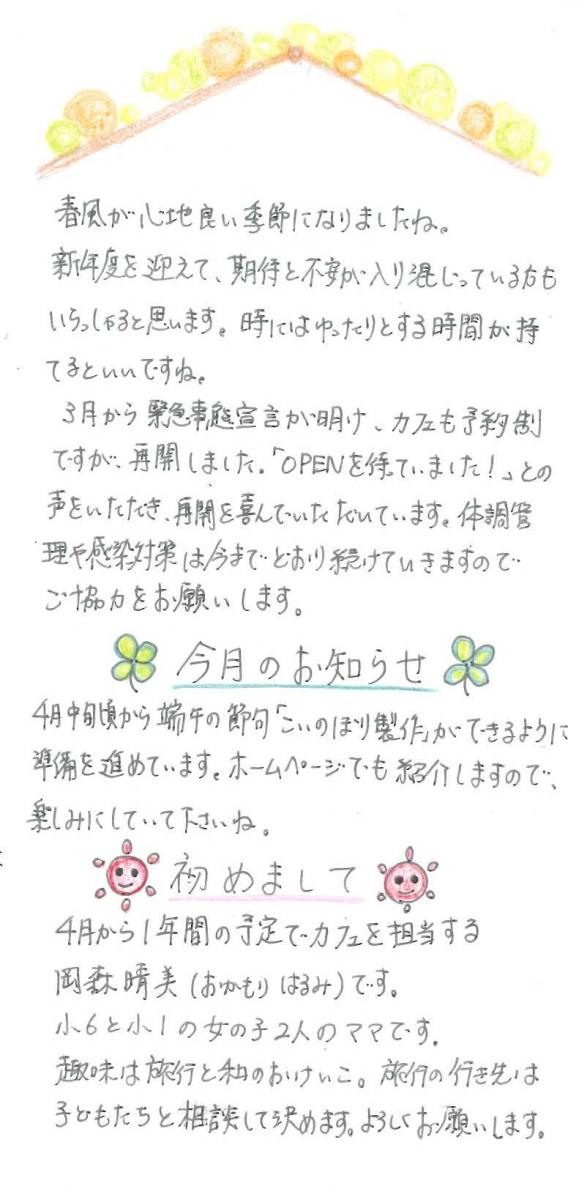 春風が心地良い季節になりましたね。
新年度を迎えて、期待と不安が入り混じっている方も
いらっしゃると思います。時にはゆったりとする時間が持
てるといいですね。
3月から緊急事態宣言が明け、カフェも予約制
ですが、再開しました。「OPENを待ていました!」との
声をいただき、再開を喜んでいただいています。体調管
理や感染対策は今までどおり続けていきますので
ご協力をお願いします。
今月のお知らせ
4月中旬頃から端午の節句「こいのぼり製作」ができるように
準備を進めています。ホームページでも紹介しますので、
楽しみにしていて下さいね。
初めまして
4月から1年間の予定でカフェを担当する
岡森晴美(おかもり はるみ)です。
小6と小1の女の子2人のママです。
趣味は旅行と和のおけいこ。旅行の行き先は
子どもたちと相談して決めます。よろしくお願いします。